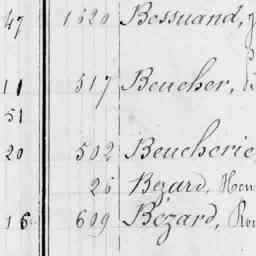 47 1520 Bossuand,
11 517 Beucher,
51
20 502 Beucherie,
26 Bezard, Hen
16 609 Bézard, Ro